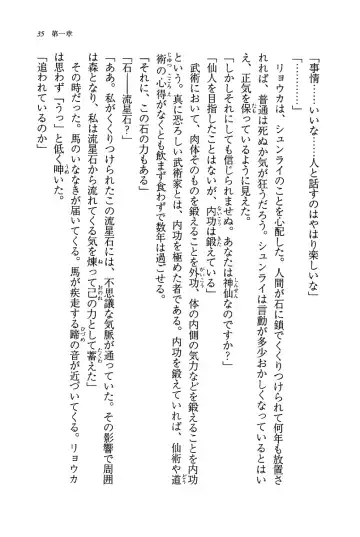 35 第一章
「事情……いいな……人と話すのはやはり楽しいな」
リョウカは、シュンライのことを心配した。人間が石に鎖でくくりつけられて何年も放置さ
れれば、普通は死ぬか気が狂うだろう。シュンライは言動が多少おかしくなっているとはい
え、正気を保っているように見えた。
「しかしそれにしても信じられませぬ。あなたは神仙なのですか？」
「仙人を目指したことはないが、内功は鍛えている」
武術において、肉体そのものを鍛えることを外功、体の内側の気力などを鍛えることを内功
という。真に恐ろしい武術家とは、内功を極めた者である。内功を鍛えていれば、仙術や道
術の心得がなくとも飲まず食わずで数年は過ごせる。
「それに、この石の力もある」
「石――流星石？」
「ああ。私がくくりつけられたこの流星石には、不思議な気脈が通っていた。その影響で周囲
は森となり、私は流星石から流れてくる気を煉って己の力として蓄えた」
その時だった。馬のいななきが届いてくる。馬が疾走する蹄の音が近づいてくる。リョウカ
は思わず「うっ」と低く呻いた。
「追われているのか」